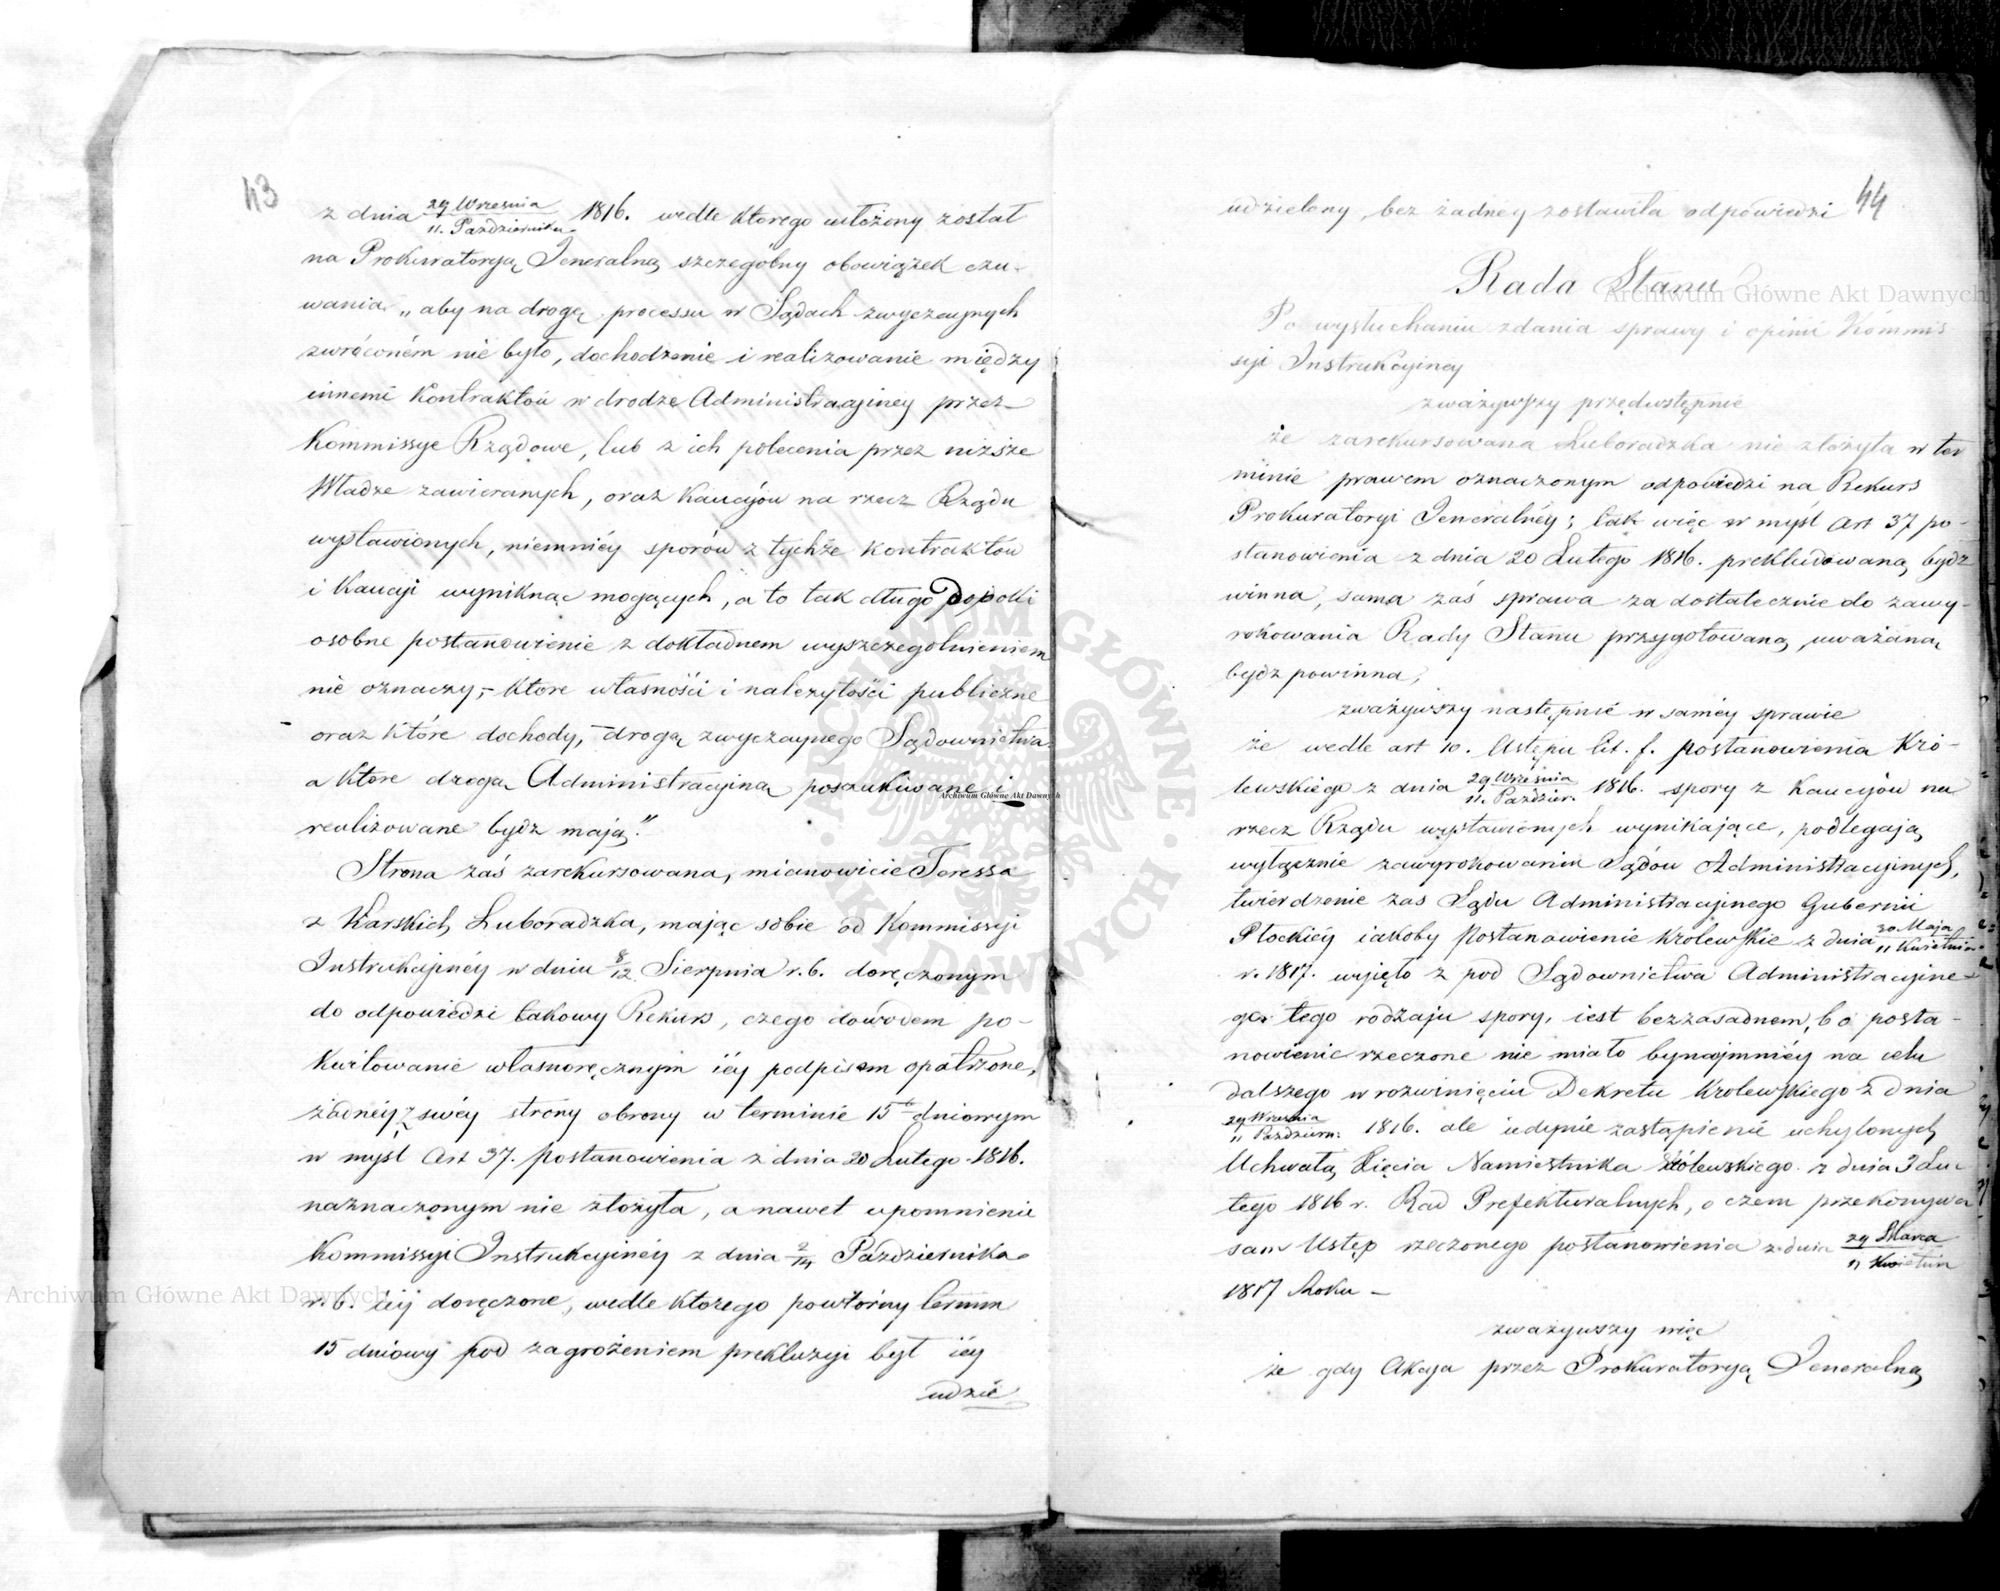 43
z dnia 29 Września / 11. Października 1816. wedle którego włożony został
na Prokuratoryą Jeneralną szczególny obowiązek czu-
wania „aby na drogę processu w Sądach zwyczaynych
zwróconém nie było, dochodzenie i realizowanie między
innemi Kontraktów w drodze Administracyiney przez
Kommissye Rządowe, lub z ich polecenia przez niższe
Władze zawieranych, oraz Kaucyów na rzecz Rządu
wystawionych, niemniéy sporów z tychże kontraktów
i Kaucyi wyniknąć mogących, a to tak długo Dopóki
osobne postanowienie z dokładnem wyszczególnieniem
nie oznaczy, - które własności i należytości publiczne
oraz które dochody, drogą zwyczaynego Sądownictwa
a które drogą Administracyiną poszukiwane i
realizowane bydz mają."
Strona zaś zarekursowana, mianowicie Teressa
z Karskich Luboradzka, mając sobie od Kommissyi
Instrukcyinéy w dniu 8/12 Sierpnia r. b. doręczonym
do odpowiedzi takowy Rekurs, czego dowodem po-
kwitowanie własnoręcznym iéy podpisem opatrzone,
żadnéy z swéy strony obrony w terminie 15to dniowym
w myśl Art 37. Postanowienia z dnia 20 Lutego 1816.
naznaczonym nie złożyła, a nawet upomnienie
Kommissyi Instrukcyinéy z dnia 2/14 Października
r. b. iéy doręczone, wedle którego powtórny termin
15 dniowy pod zagrożeniem prekluzyi był iéy
udzie
44
udzielony, bez żadney zostawiła odpowiedzi
Rada Stanu
Po wysłuchaniu zdania sprawy i opinii Kommis
syi Instrukcyiney
zważywszy przedwstępnie
że zarekursowana Luboradzka nie złożyła w ter
minie prawem oznaczonym odpowiedzi na Rekurs
Prokuratoryi Jeneralnéy; tak więc w myśl Art 37 po-
stanowienia z dnia 20 Lutego 1816. prekludowaną bydz
winna, sama zaś sprawa za dostatecznie do zawy-
rokowania Rady Stanu przygotowaną, uważaną
bydz powinna,
zważywszy następnie w saméy sprawie
że wedle art 10. Ustępu lit. f. postanowienia Kró-
lewskiego z dnia 29 Września / 11. Paździer. 1816. spory z Kaucyów na
rzecz Rządu wystawionych wynikające, podlegają
wyłącznie zawyrokowaniu Sądów Administracyinych,
twierdzenie zaś Sądu Administracyinego Gubernii
Płockiéy iakoby Postanowienie Królewskie z dnia 30 Maja / 11 Kwietnia
r. 1817. wyjęło z pod Sądownictwa Administracyine-
go tego rodzaju spory, iest bezzasadnem, bo posta-
nowienie rzeczone nie miało bynajmniéy na celu
dalszego w rozwinięciu Dekretu Królewskiego z dnia
29 Września / 11 Paździer. 1816. ale iedynie zastąpienie uchylonych
Uchwałą Xięcia Namiestnika Królewskiego z dnia 3 Lu-
tego 1816 r. Rad Prefekturalnych, o czem przekonywa
sam Ustęp rzeczonego postanowienia z dnia 29 Marca / 11 Kwietnia
1817 Roku -
zważywszy więc
że gdy Akcya przez Prokuratoryą Jeneralną
Archiwum Główne Akt Dawnych
Archiwum Główne Akt Dawnych
Archiwum Główne Akt Dawnych
ARCHIWUM GŁÓWNE · AKT DAWNYCH ·